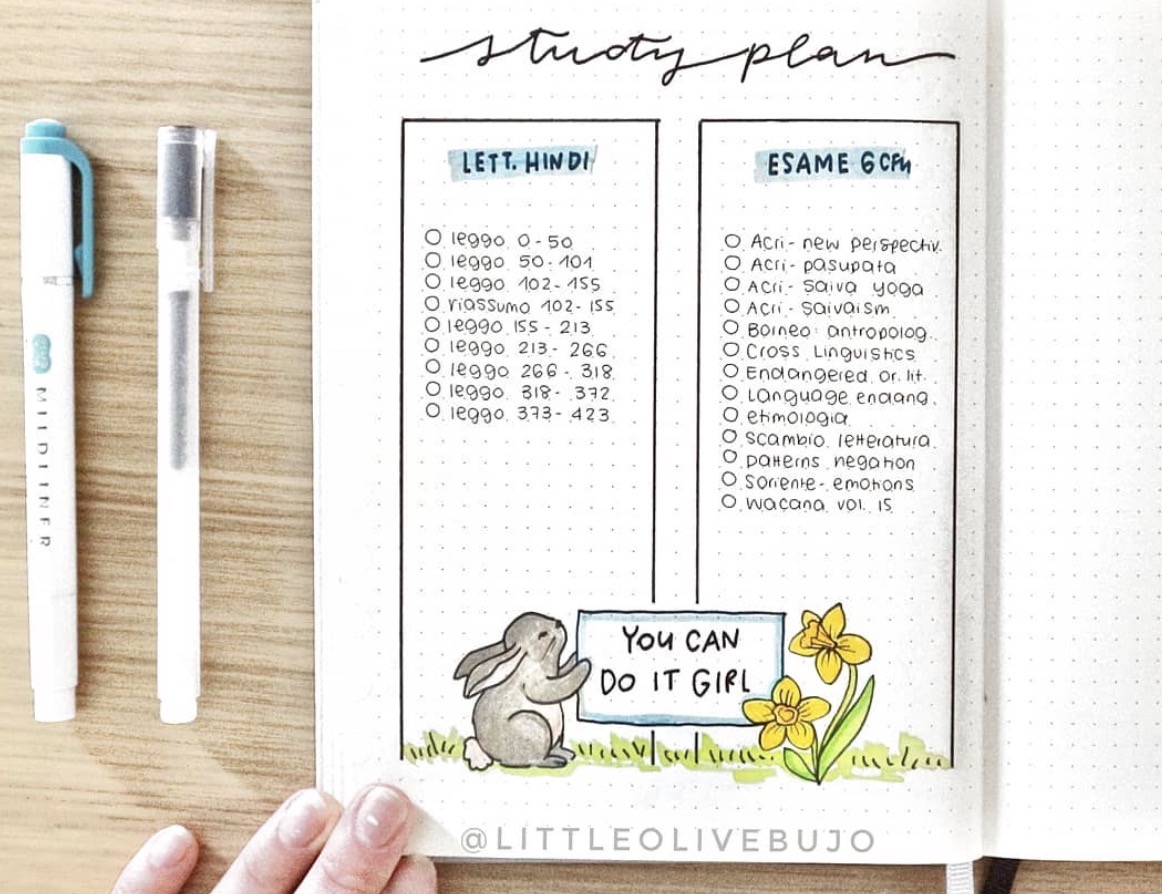 study plan
LETT. HINDI
leggo 0-50
leggo 50-101
leggo 102-155
riassumo 102-155
leggo 155-213
leggo 213-266
leggo 266-318
leggo 318-372
leggo 373-423
ESAME 6 CFU
Acri- new perspectiv.
Acri- pasupata
Acri- Saiva yoga
Acri- saivaism
Borneo antropolog.
Cross Linguistics
Endangered or. lit.
Language endang.
etimologia
scambio letteratura
patterns negation
Soriente- emotions
Wacana vol. 15
YOU CAN
DO IT GIRL
MILDLINER
@LITTLEOLIVEBUJO